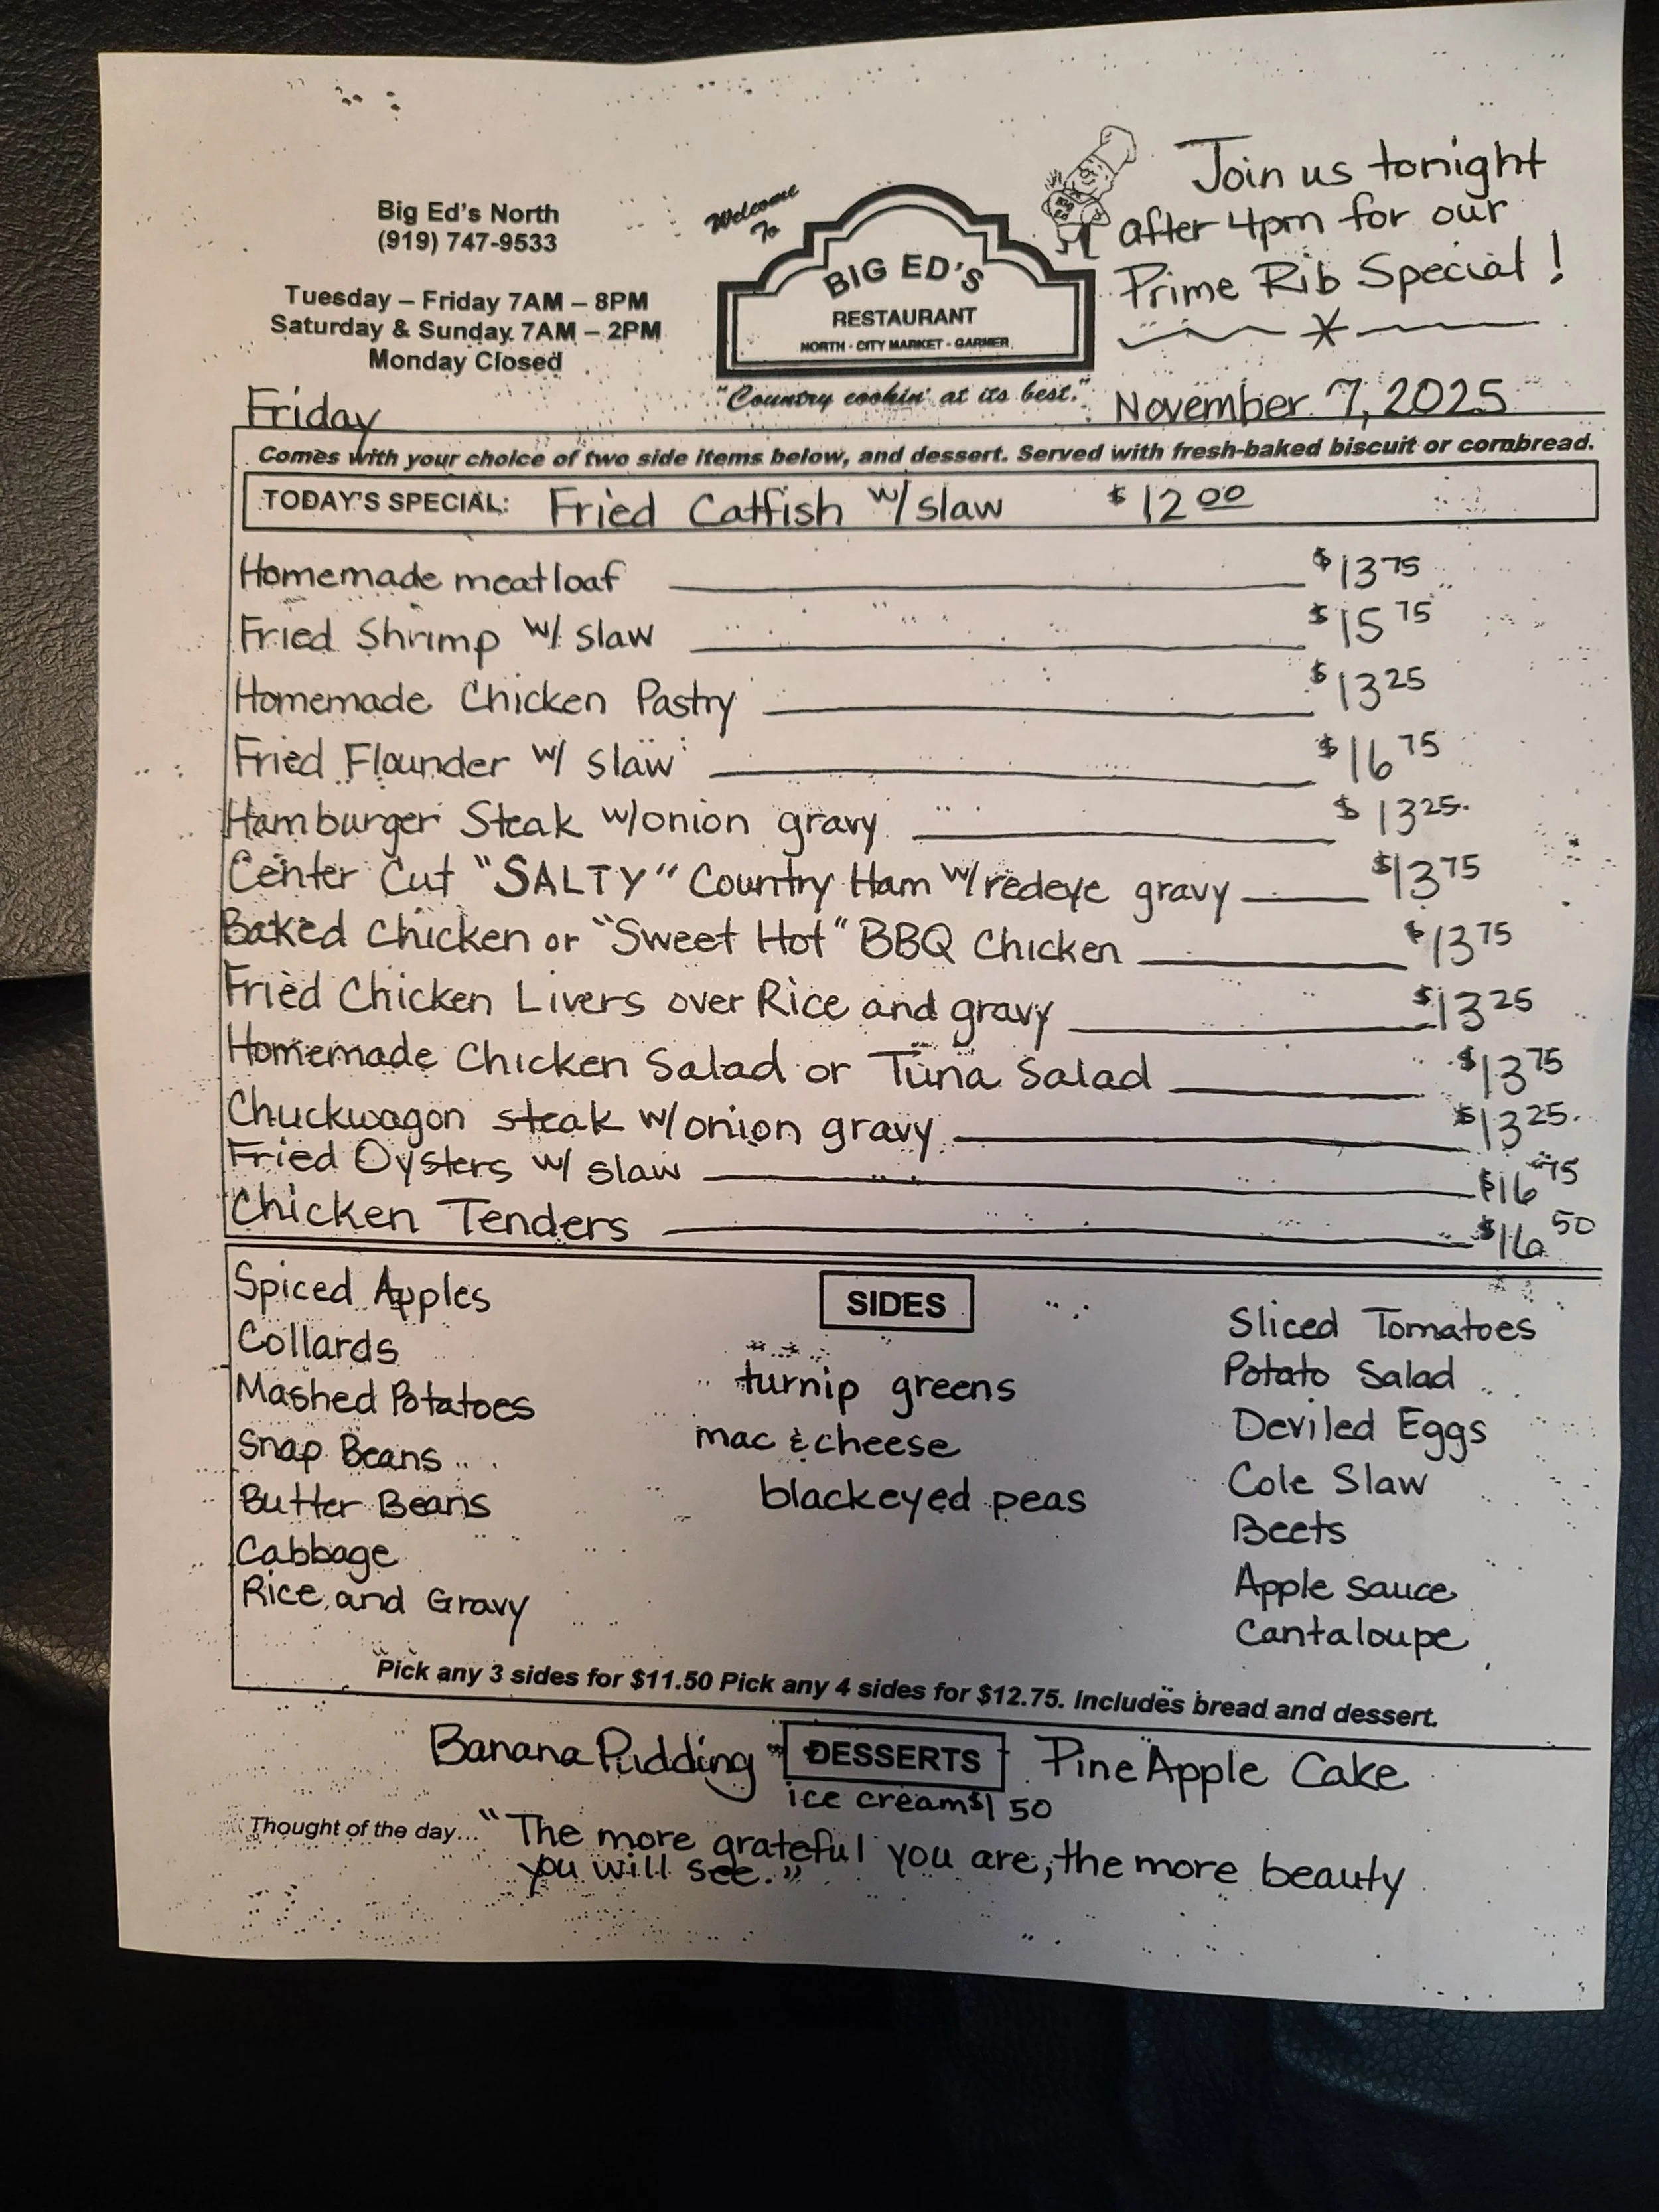 Big Ed's North
(919) 747-9533
Tuesday – Friday 7AM – 8PM
Saturday & Sunday 7AM – 2PM
Monday Closed
Welcome
To
BIG ED'S
RESTAURANT
NORTH · CITY MARKET · GARNER
"Country cookin' at its best."
BIG
ED'S
Join us tonight
after 4pm for our
Prime Rib Special!
Friday
November 7, 2025
Comes with your choice of two side items below, and dessert. Served with fresh-baked biscuit or cornbread.
TODAY'S SPECIAL: Fried Catfish w/ slaw $12 00
Homemade meatloaf $13 75
Fried Shrimp w/ slaw $15 75
Homemade Chicken Pastry $13 25
Fried Flounder w/ slaw $16 75
Hamburger Steak w/onion gravy $13 25
Center Cut "SALTY" Country Ham w/redeye gravy $13 75
Baked Chicken or "Sweet Hot" BBQ Chicken $13 75
Fried Chicken Livers over Rice and gravy $13 25
Homemade Chicken Salad or Tuna Salad $13 75
Chuckwagon steak w/onion gravy $13 25
Fried Oysters w/ slaw $16 75
Chicken Tenders $16 50
SIDES
Spiced Apples
Collards
Mashed Potatoes
Snap Beans
Butter Beans
Cabbage
Rice and Gravy
turnip greens
mac & cheese
blackeyed peas
Sliced Tomatoes
Potato Salad
Deviled Eggs
Cole Slaw
Beets
Apple sauce
Cantaloupe
Pick any 3 sides for $11.50 Pick any 4 sides for $12.75. Includes bread and dessert.
Banana Pudding DESSERTS PineApple Cake
ice cream $1 50
Thought of the day... "The more grateful you are, the more beauty
you will see."